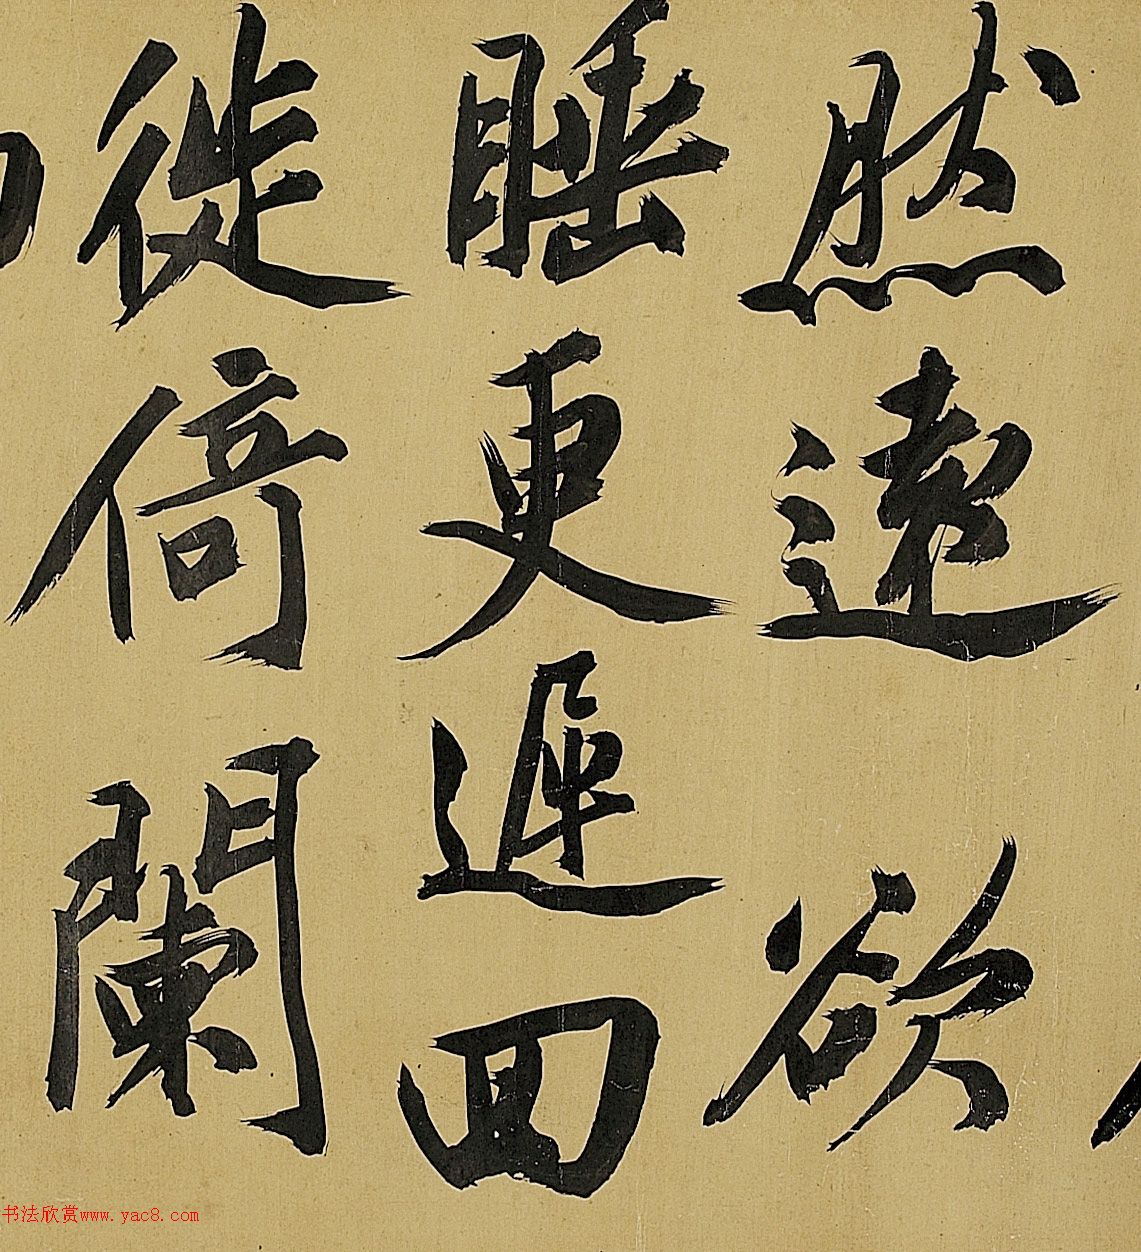 然遠欲
睡更遲回
徙倚闌
书法欣赏www.yac8.com